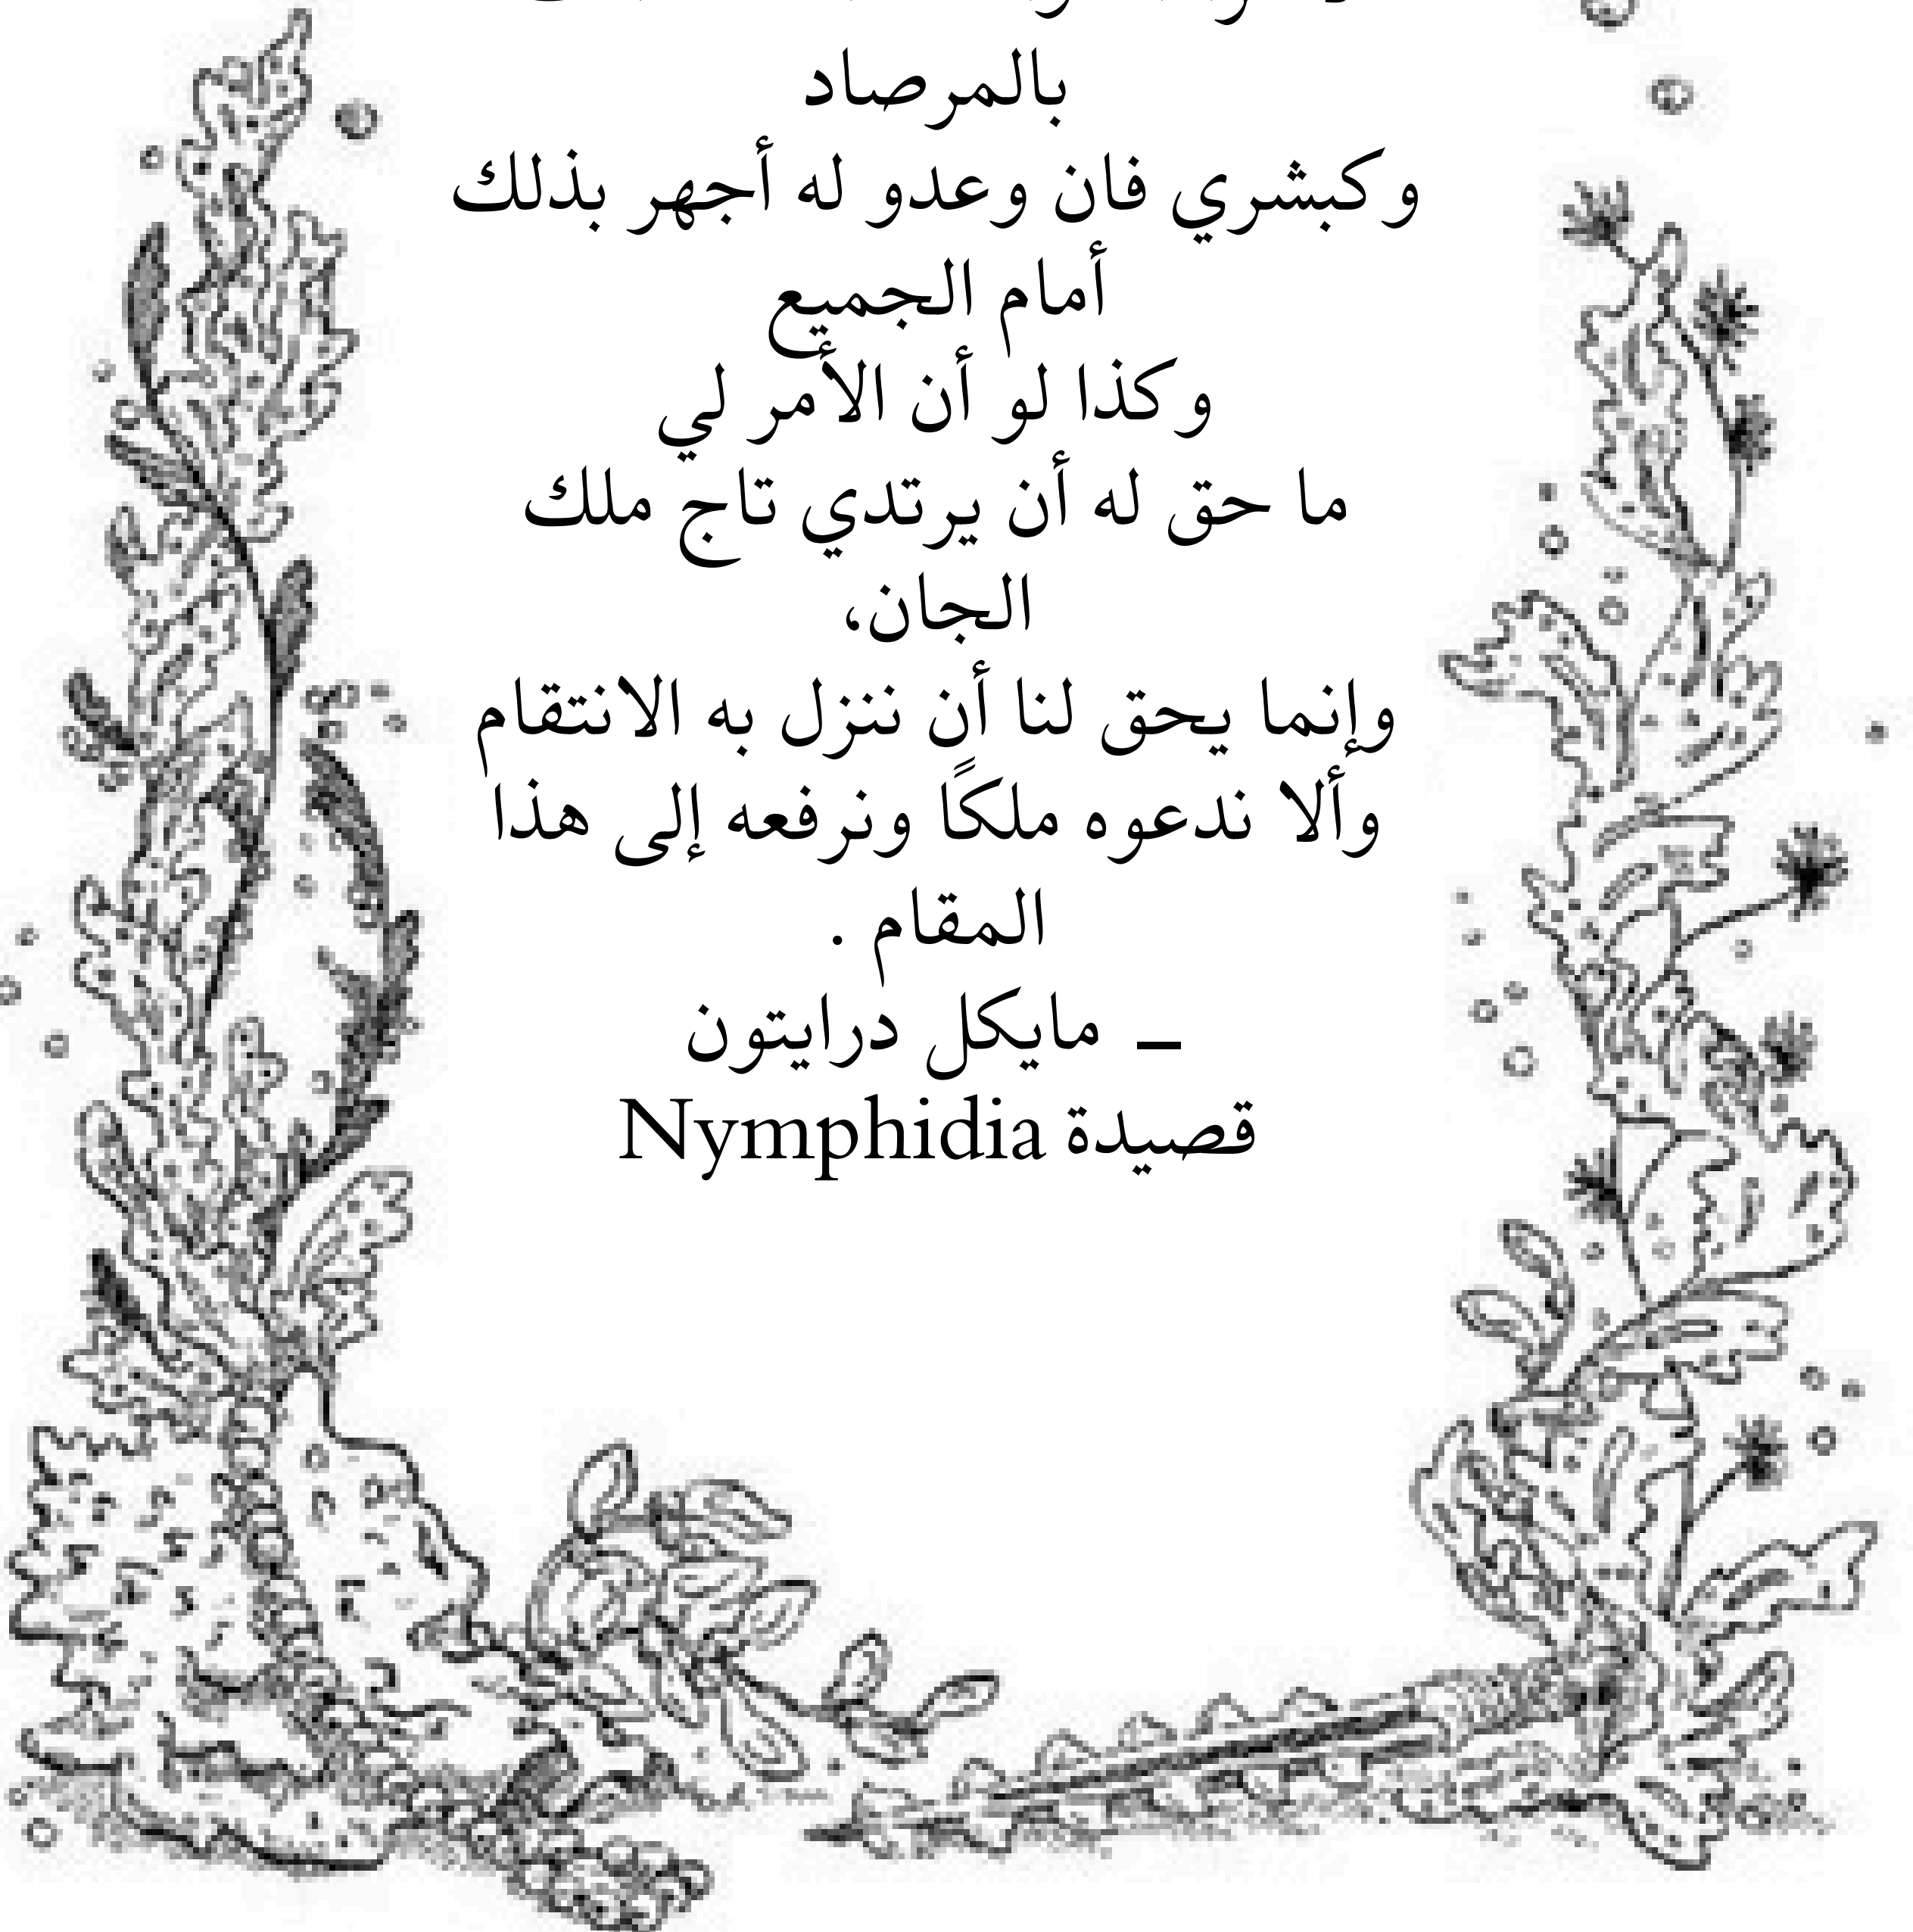 بالمرصاد
وكبشري فان وعدو له أجهر بذلك
أمام الجميع
وكذا لو أن الأمر لي
ما حق له أن يرتدي تاج ملك
الجان،
وإنما يحق لنا أن ننزل به الانتقام
وألا ندعوه ملكًا ونرفعه إلى هذا
المقام .
– مايكل درايتون
قصيدة Nymphidia